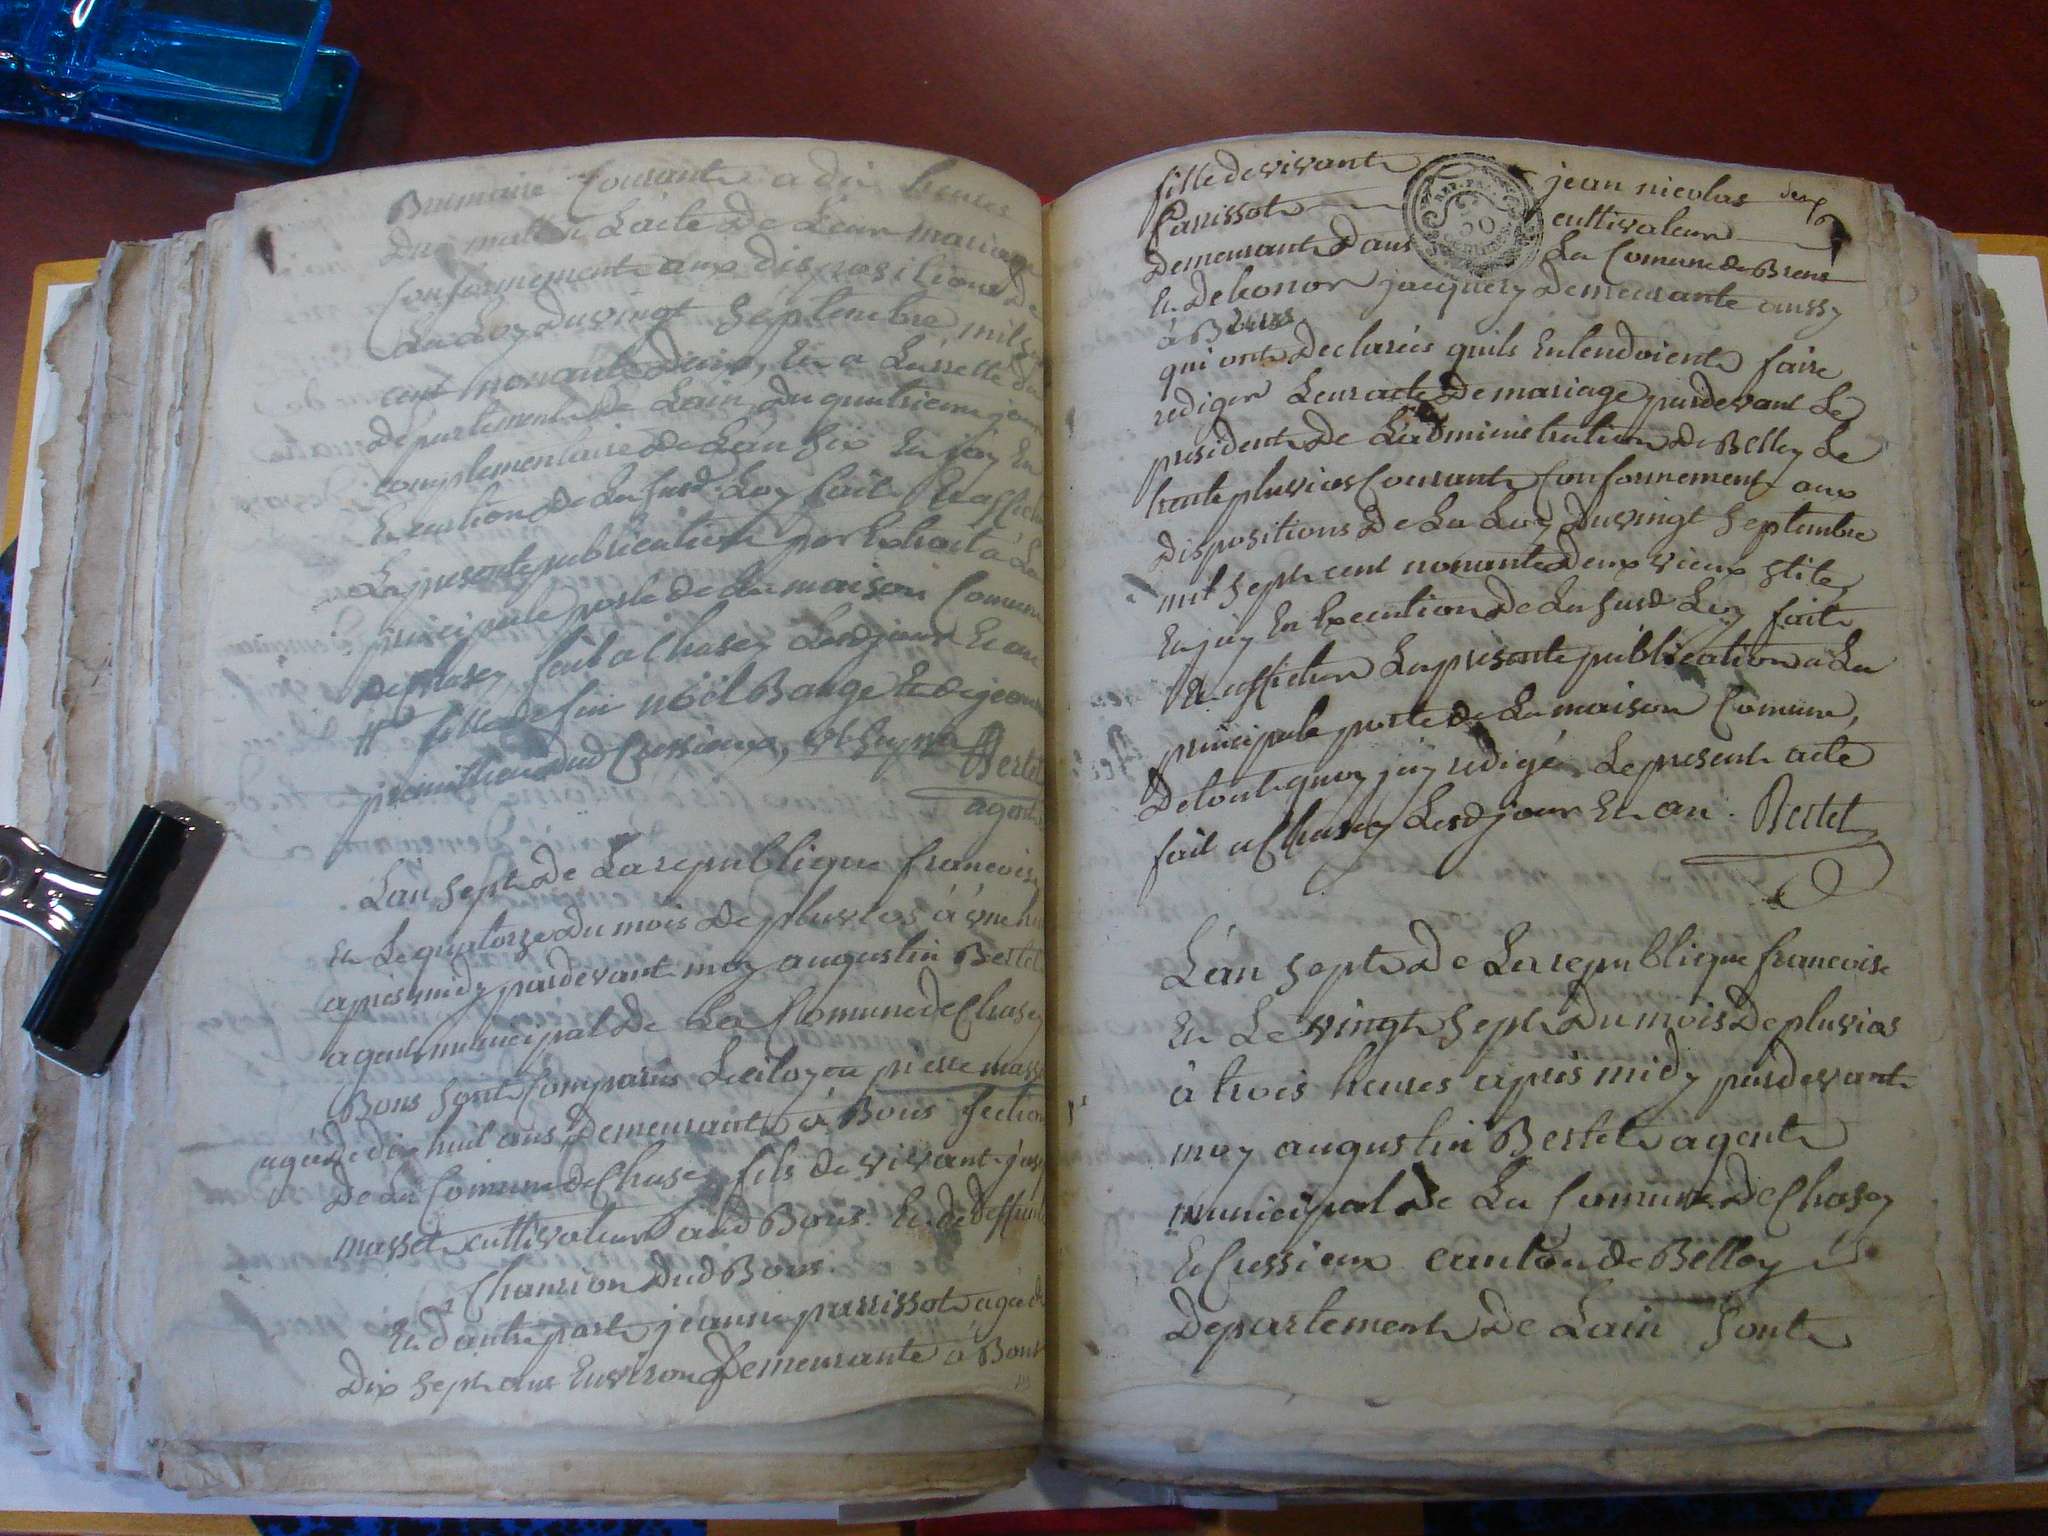 Brumaire Courant a dix heures
Du matin Lacte De Leur mariage
Conformement aux dispositions De
La Loy Du vingt Septembre mil
cent nonante Deux, Et a Larrette du
département De Lain Du quatrieme jour
complementaire De Lan Six Et jay En
Execution De La Susd Loy fait Et afficher
La presente publication par Extrait à La
principale porte De La maison Comune
De Chasey fait a Chasey Lesd jour Et an
fille de feu noël Bauge Et de jeanne
dud Cressieux, Bertet
agent
Lan Sept De La republique francoise
Et Le quatorze Du mois De pluvios à une
apres midy pardevant moy augustin Bertet
agent municipal De La Comune De Chasey
Bons Sont Comparus Le citoyen pierre masset
agé De dix huit ans Demeurant à Bons Section
De La Comune De Chasey fils De vivant
masset cultivateur aud Bons. Et De Deffunte
Chanrion Dud Bons.
Et d'autre part jeanne parrissot agée de
Dix Sept ans Environ Demeurante à Bons
fille De vivant jean nicolas
Parrissot cultivateur
Demeurant Dans La Comune De Brens
Et De leonor jacquery Demeurante aussy
à Brens
qui ont Declarés quils Entendoient faire
rediger Leur acte De mariage pardevant Le
president De Ladministration De Belley Le
trente pluvios Courant Conformement aux
Dispositions De La Loy Du vingt Septembre
mil Sept cent nonante Deux vieux stile
Et jay En Execution De La Susd Loy fait
Et afficher La presente publication a La
principale porte De La maison Comune,
De tout quoy jay redigé Le present acte
fait a Chasey Lesd jour Et an. Bertet
Lan Sept De La republique francoise
Et Le vingt Sept Du mois De pluvios
à trois heures apres midy pardevant
moy augustin Bertet agent
municipal De La Comune De Chasey
Et Cressieux canton De Belley
Departement De Lain Sont